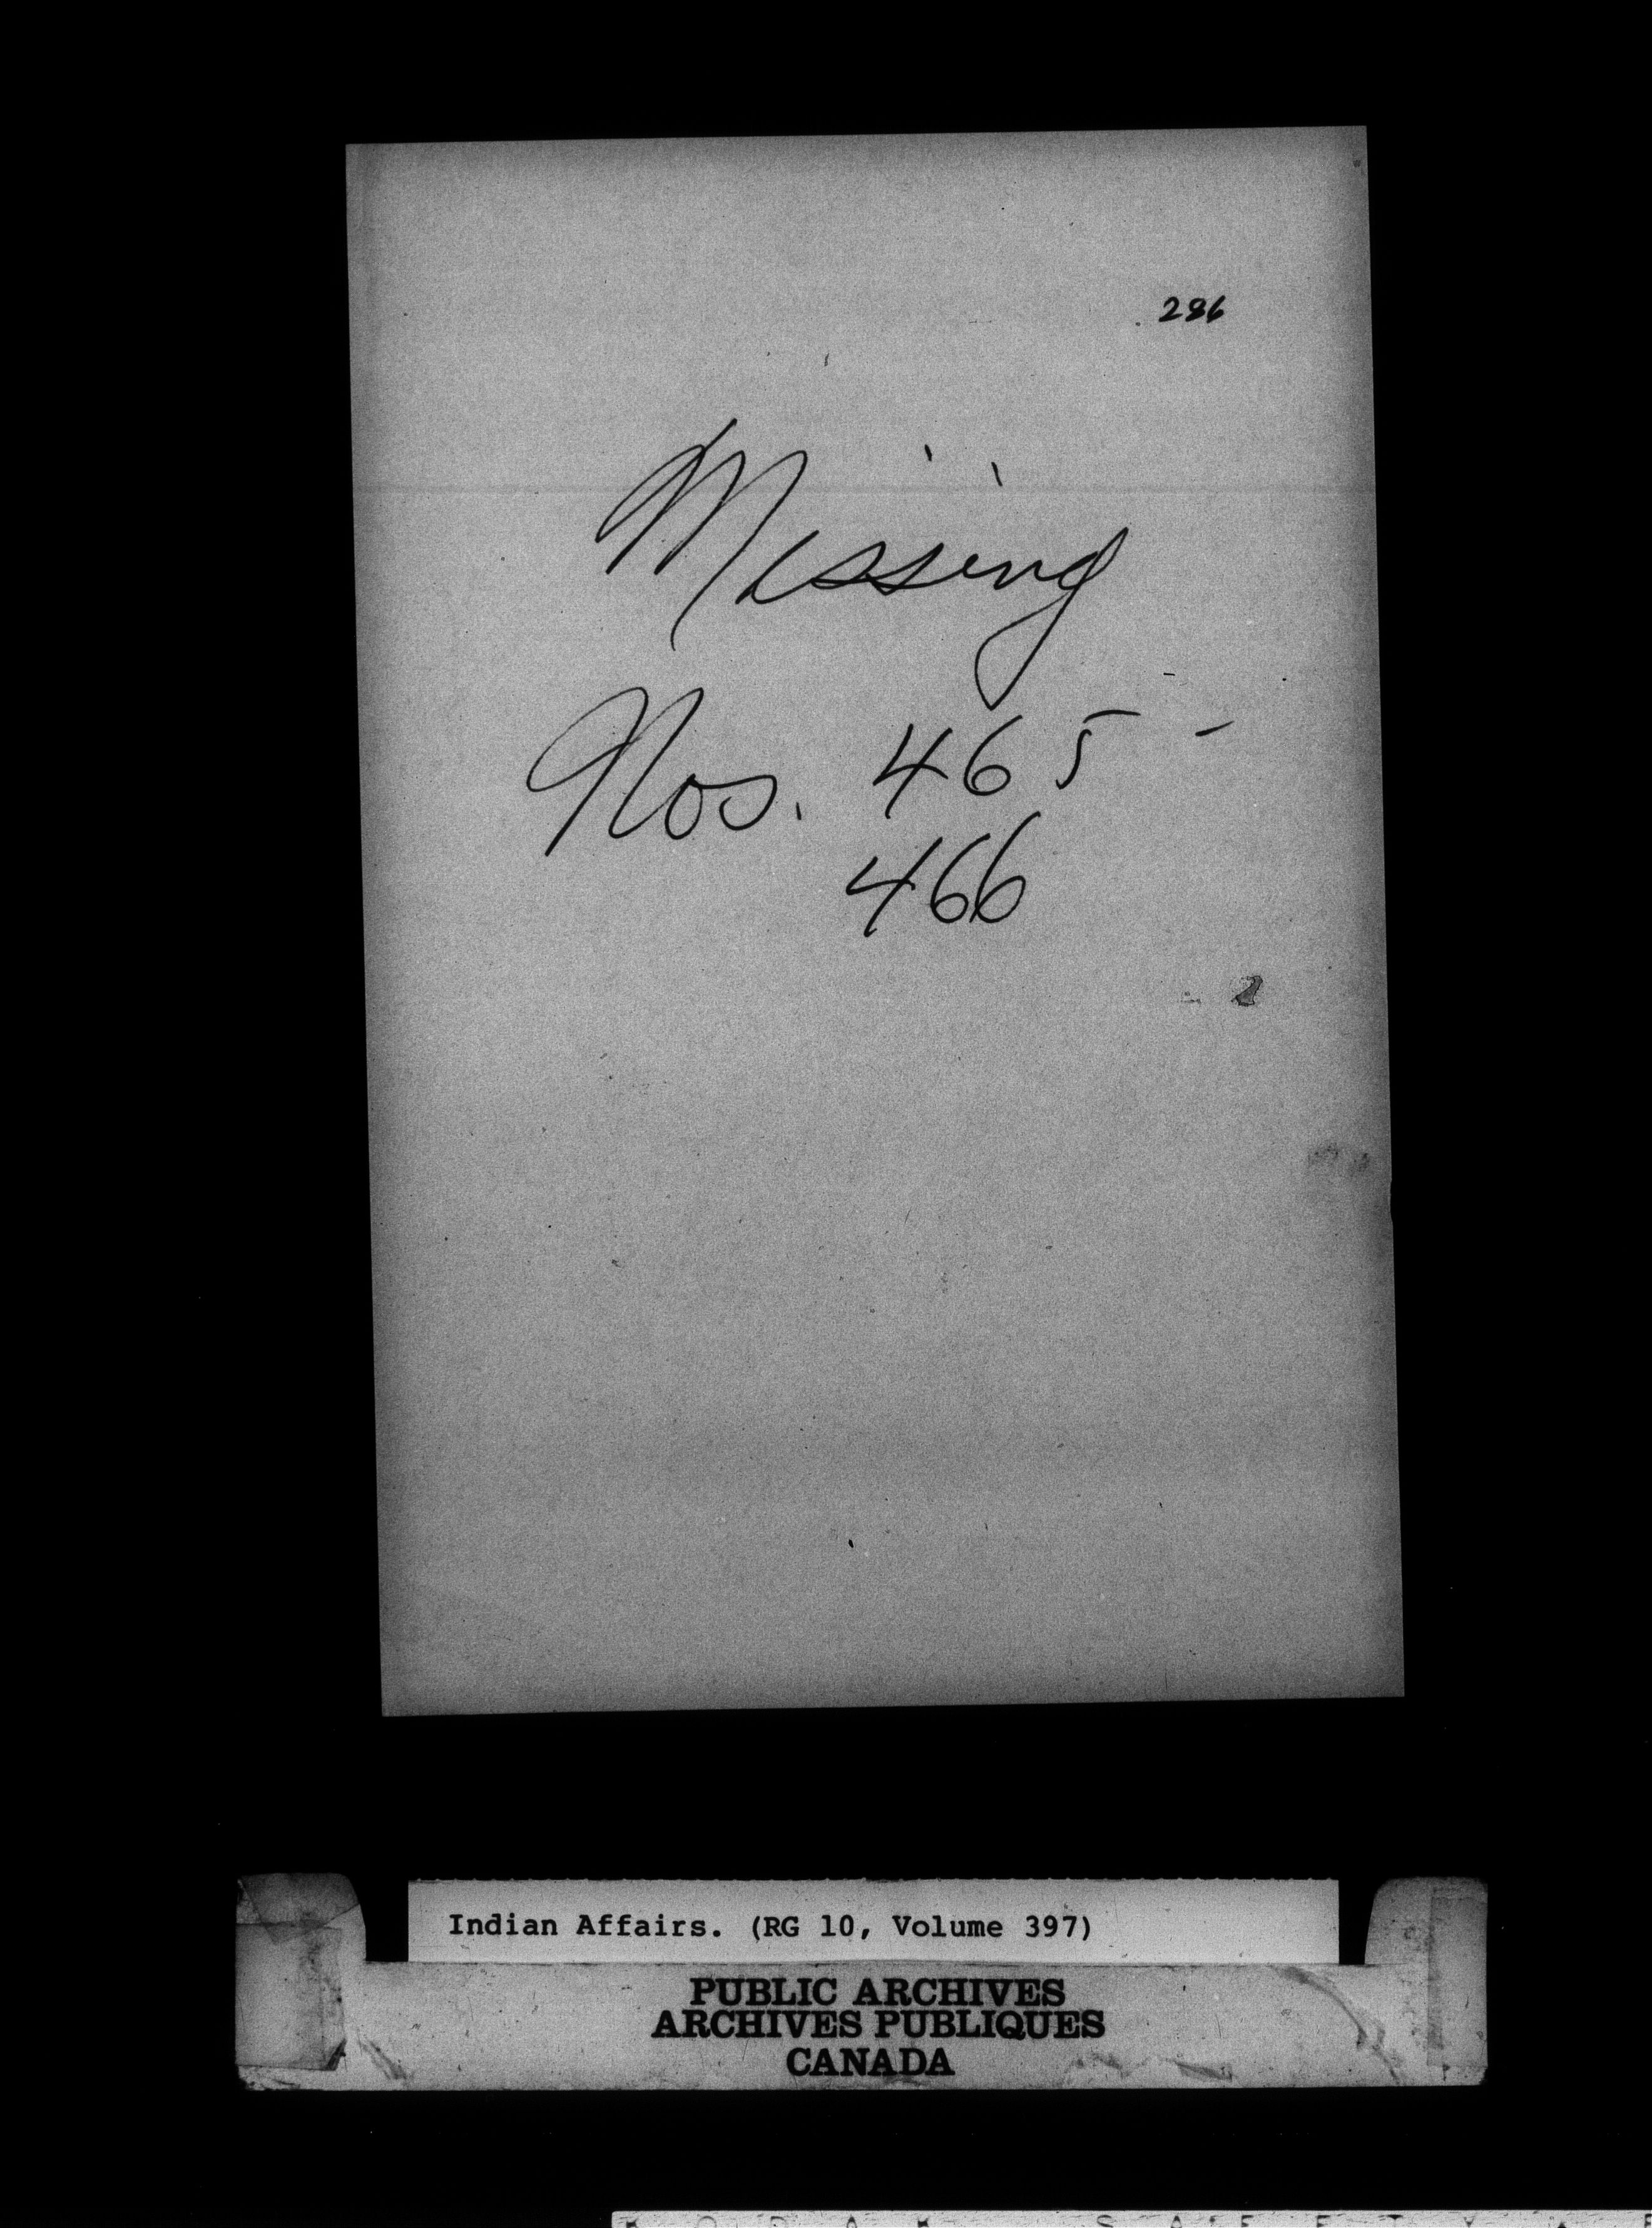 286
Missing
Nos. 465 -
466
Indian Affairs. (RG 10, Volume 397)
PUBLIC ARCHIVES
ARCHIVES PUBLIQUES
CANADA